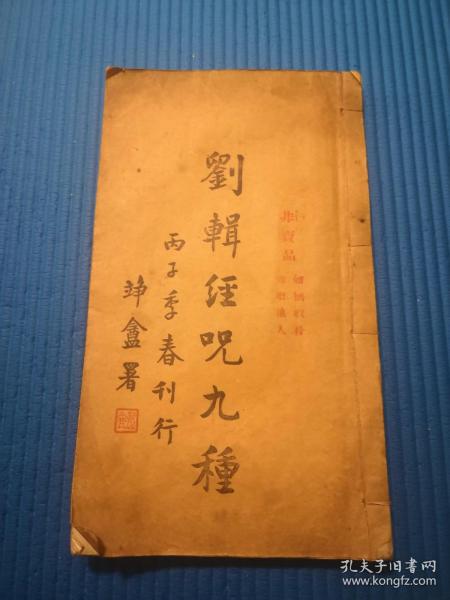 非賣品
劉輯經咒九種
丙子季春刊行
竫盦署
孔夫子旧书网
www.kongfz.com